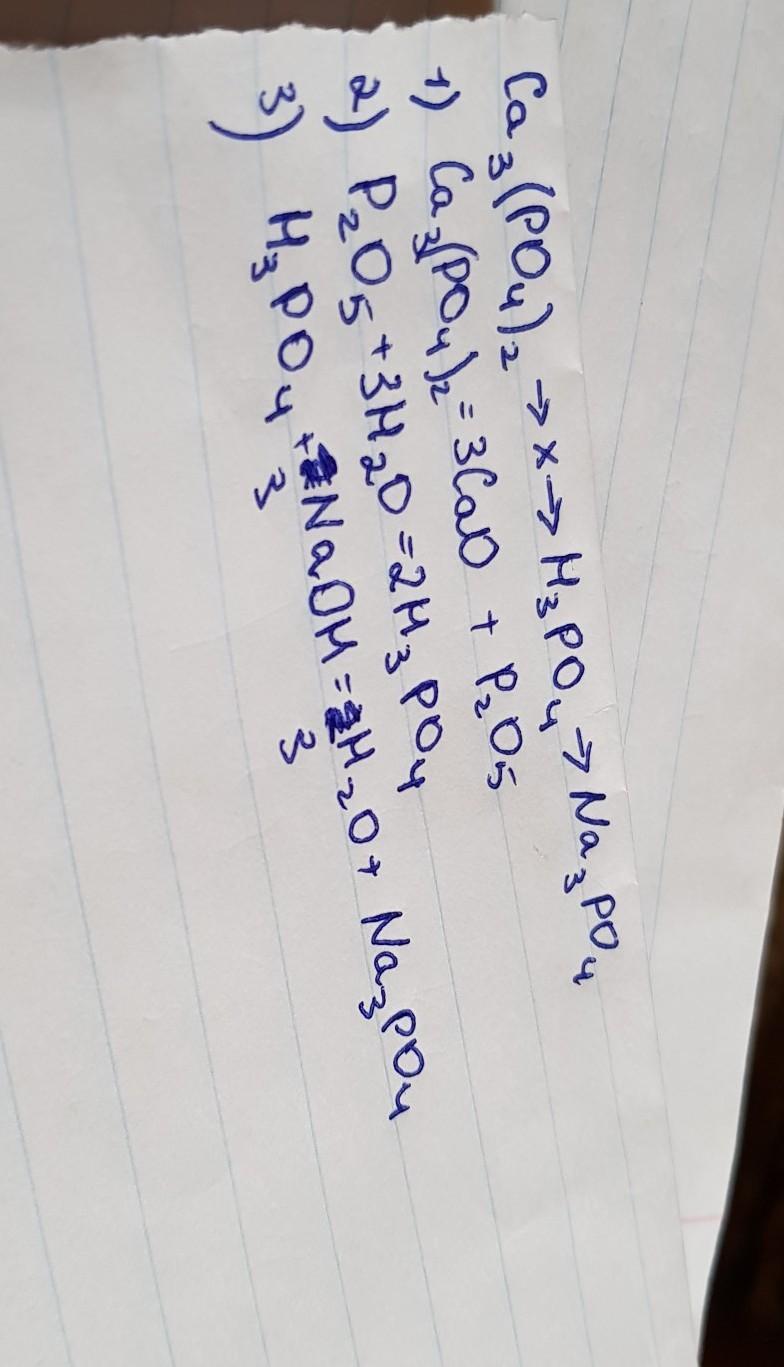 Ca₃(PO₄)₂ → x → H₃PO₄ → Na₃PO₄
1) Ca₃(PO₄)₂ = 3CaO + P₂O₅
2) P₂O₅ + 3H₂O = 2H₃PO₄
3) H₃PO₄ + 3NaOH = 3H₂O + Na₃PO₄